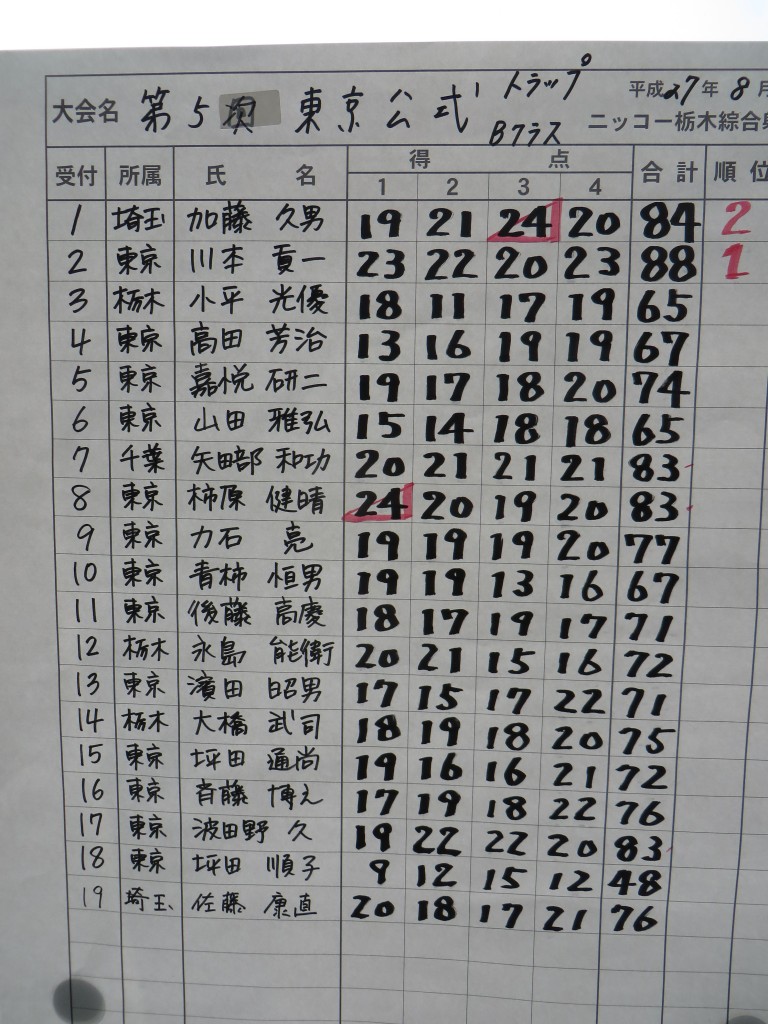 大会名 第5 東京公式 トラップ Bクラス
平成27年8月
ニッコー栃木綜合
受付 所属 氏名 得点 1 2 3 4 合計 順位
1 埼玉 加藤 久男 19 21 24 20 84 2
2 東京 川本 貢一 23 22 20 23 88 1
3 栃木 小平 光優 18 11 17 19 65
4 東京 高田 芳治 13 16 19 19 67
5 東京 嘉悦 研二 19 17 18 20 74
6 東京 山田 雅弘 15 14 18 18 65
7 千葉 矢田部 和功 20 21 21 21 83
8 東京 柿原 健晴 24 20 19 20 83
9 東京 力石 亮 19 19 19 20 77
10 東京 青柿 恒男 19 19 13 16 67
11 東京 後藤 高慶 18 17 19 17 71
12 栃木 永島 能衛 20 21 15 16 72
13 東京 濱田 昭男 17 15 17 22 71
14 栃木 大橋 武司 18 19 18 20 75
15 東京 坪田 通尚 19 16 16 21 72
16 東京 斉藤 博之 17 19 18 22 76
17 東京 波田野 久 19 22 22 20 83
18 東京 坪田 順子 9 12 15 12 48
19 埼玉 佐藤 康直 20 18 17 21 76